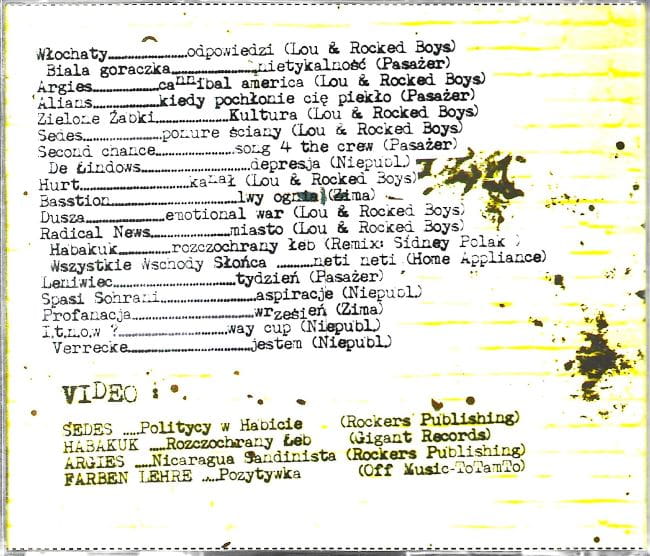 Włochaty..............odpowiedzi (Lou & Rocked Boys)
Biala goraczka...............nietykalność (Pasażer)
Argies............cannibal america (Lou & Rocked Boys)
Alians............kiedy pochłonie cię piekło (Pasażer)
Zielone Żabki.............Kultura (Lou & Rocked Boys)
Sedes..............ponure ściany (Lou & Rocked Boys)
Second chance..............song 4 the crew (Pasażer)
De Łindows...................depresja (Niepubl.)
Hurt...................kanał (Lou & Rocked Boys)
Basstion......................lwy ognia (Zima)
Dusza..............emotional war (Lou & Rocked Boys)
Radical News.............miasto (Lou & Rocked Boys)
Habakuk.........rozczochrany łeb (Remix: Sidney Polak )
Wszystkie Wschody Słońca .......neti neti (Home Appliance)
Leniwiec.....................tydzień (Pasażer)
Spasi Sohrani................aspiracje (Niepubl.)
Profanacja...................wrzesień (Zima)
I.t.n.o.w ?..................way cup (Niepubl.)
Verrecke.....................jestem (Niepubl.)
VIDEO :
SEDES ....Politycy w Habicie (Rockers Publishing)
HABAKUK ....Rozczochrany Łeb (Gigant Records)
ARGIES ....Nicaragua Sandinista (Rockers Publishing)
FARBEN LEHRE ...Pozytywka (Off Music-ToTamTo)